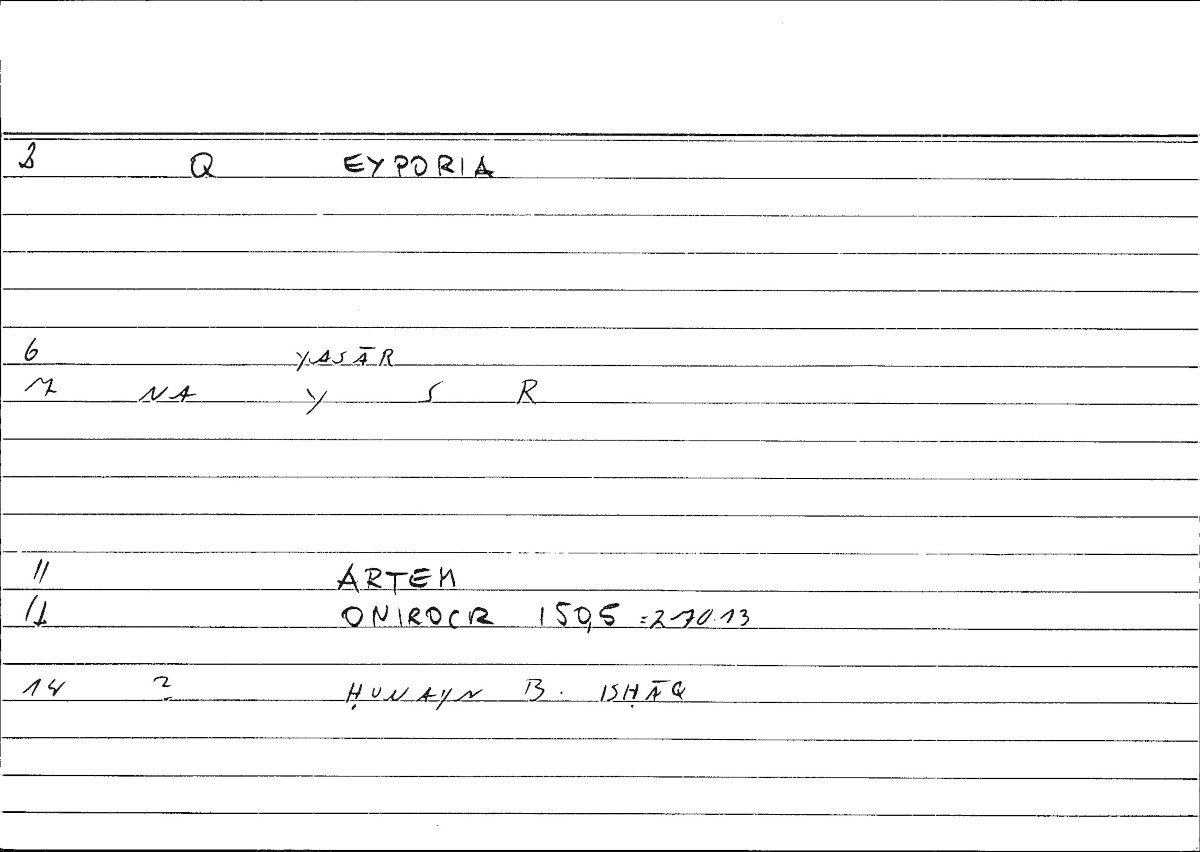 3 Q EYPORIA
6 YASĀR
7 NA Y S R
11 ARTEM
12 ONIROCR 150,5 =270.13
14 2 ḤUNAYN B. ISḤĀQ